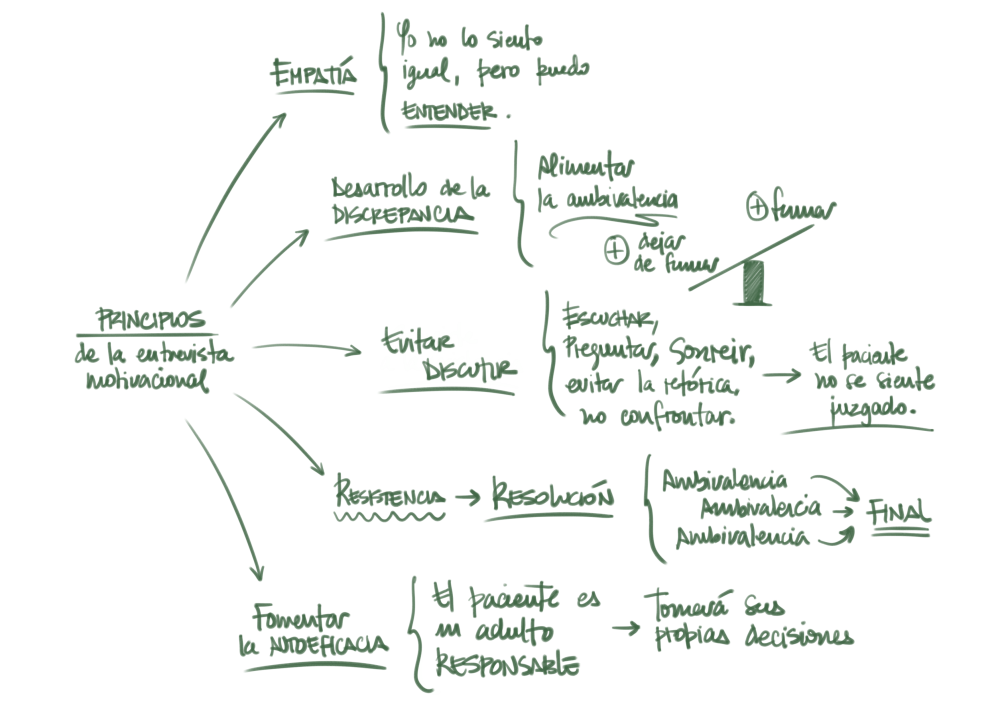 PRINCIPIOS
de la entrevista
motivacional
EMPATÍA
Yo no lo siento
igual, pero puedo
ENTENDER.
Desarrollo de la
DISCREPANCIA
Alimentar
la ambivalencia
⊕ dejar
de fumar
⊕ fumar
Evitar
DISCUTIR
ESCUCHAR,
Preguntar, Sonreir,
evitar la retórica,
no confrontar.
→ El paciente
no se siente
juzgado.
RESISTENCIA → RESOLUCIÓN
Ambivalencia
Ambivalencia → FINAL
Ambivalencia
Fomentar
la AUTOEFICACIA
El paciente es
un adulto
RESPONSABLE
→ Tomará sus
propias decisiones